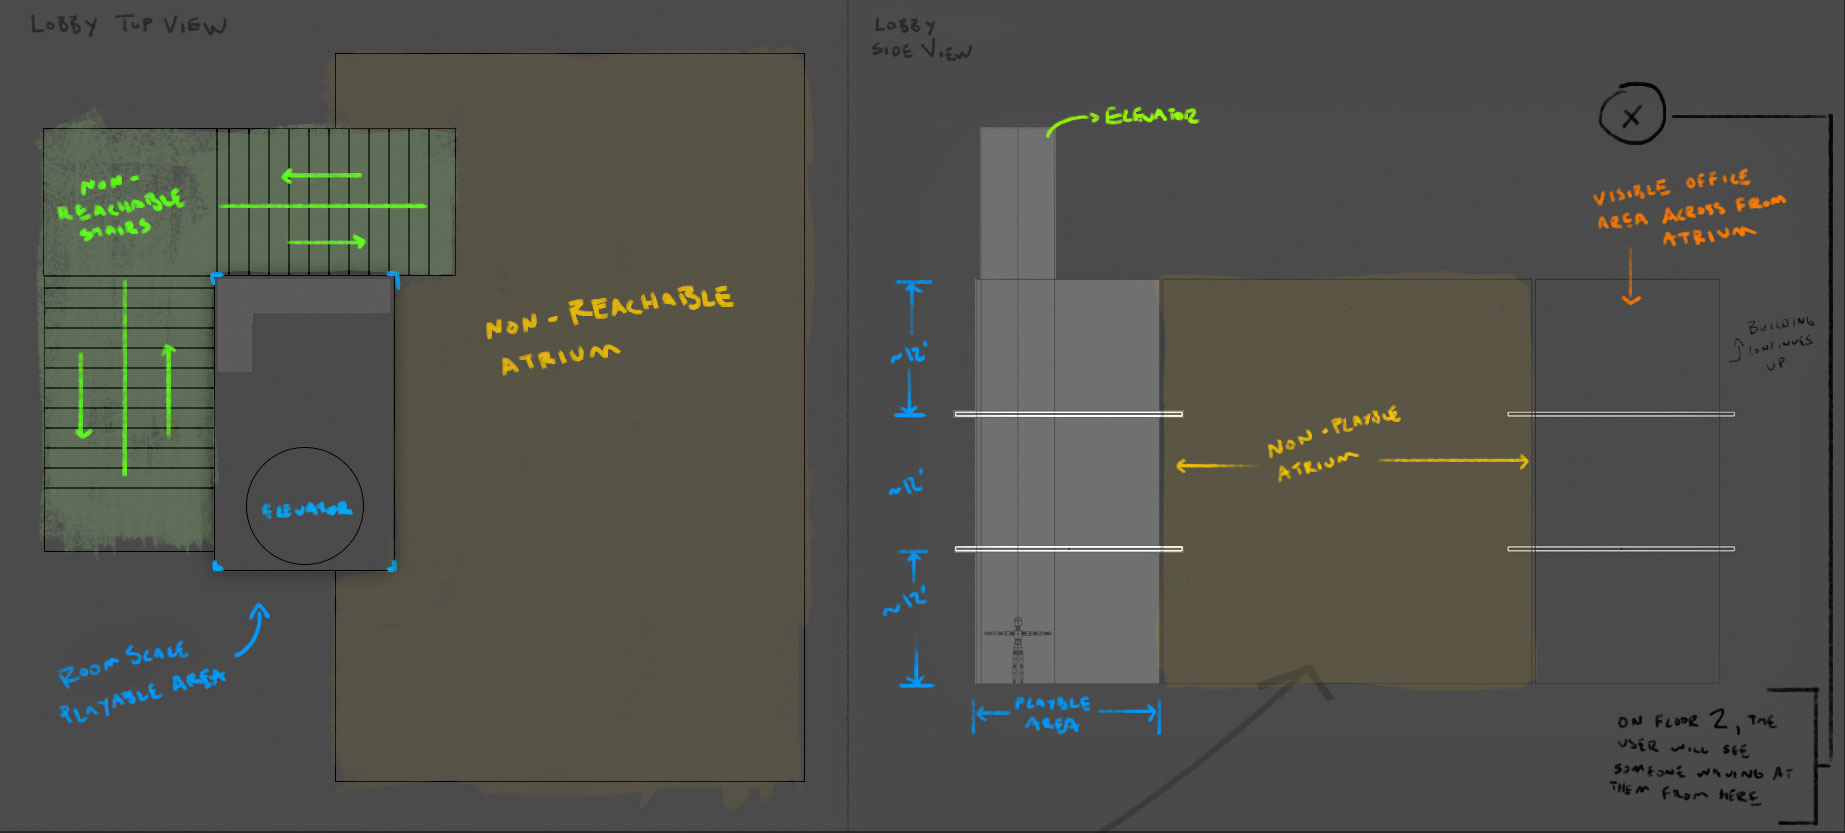 LOBBY TOP VIEW
NON-
REACHABLE
STAIRS
NON-REACHABLE
ATRIUM
ELEVATOR
ROOM SCALE
PLAYABLE AREA
LOBBY
SIDE VIEW
ELEVATOR
X
VISIBLE OFFICE
AREA ACROSS FROM
ATRIUM
BUILDING
CONTINUES
UP
~12'
~12'
~12'
NON-PLAYBLE
ATRIUM
PLAYBLE
AREA
ON FLOOR 2, THE
USER WILL SEE
SOMEONE WAVING AT
THEM FROM HERE